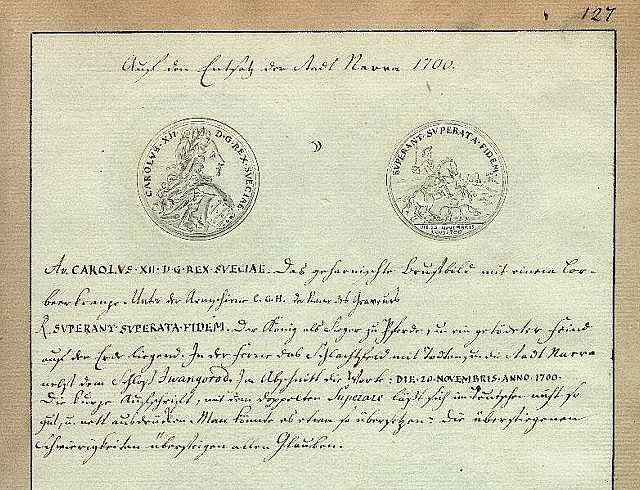 127
Auf den Entsatz der Stadt Narva 1700.
CAROLVS·XII· D·G·REX·SVECIAE·
SVPERANT·SVPERATA·FIDEM·
DIE 20 NOVEMBRIS
ANNO 1700
Av. CAROLVS·XII·D·G·REX·SVECIAE. Das geharnischte Brustbild mit einem Lor-
beerkranze. Unter der Armschiene C.G.H. der Name des Graveurs
R. SVPERANT·SVPERATA·FIDEM. Der König als Sieger zu Pferde, u. ein getödeter Feind
auf der Erde liegend. In der Ferne das Schlachtfeld mit Todten, u. die Stadt Narva
nebst dem Schloß Iwangorod. Im Abschnitt die Worte: DIE·20·NOVEMBRIS·ANNO·1700·
Die kurze Aufschrift, mit dem doppelten Superare läßt sich im Teutschen nicht so
gut, u. nett ausdrücken. Man könnte es etwa so übersetzen: Die überstiegenen
Schwierigkeiten übersteigen allen Glauben.